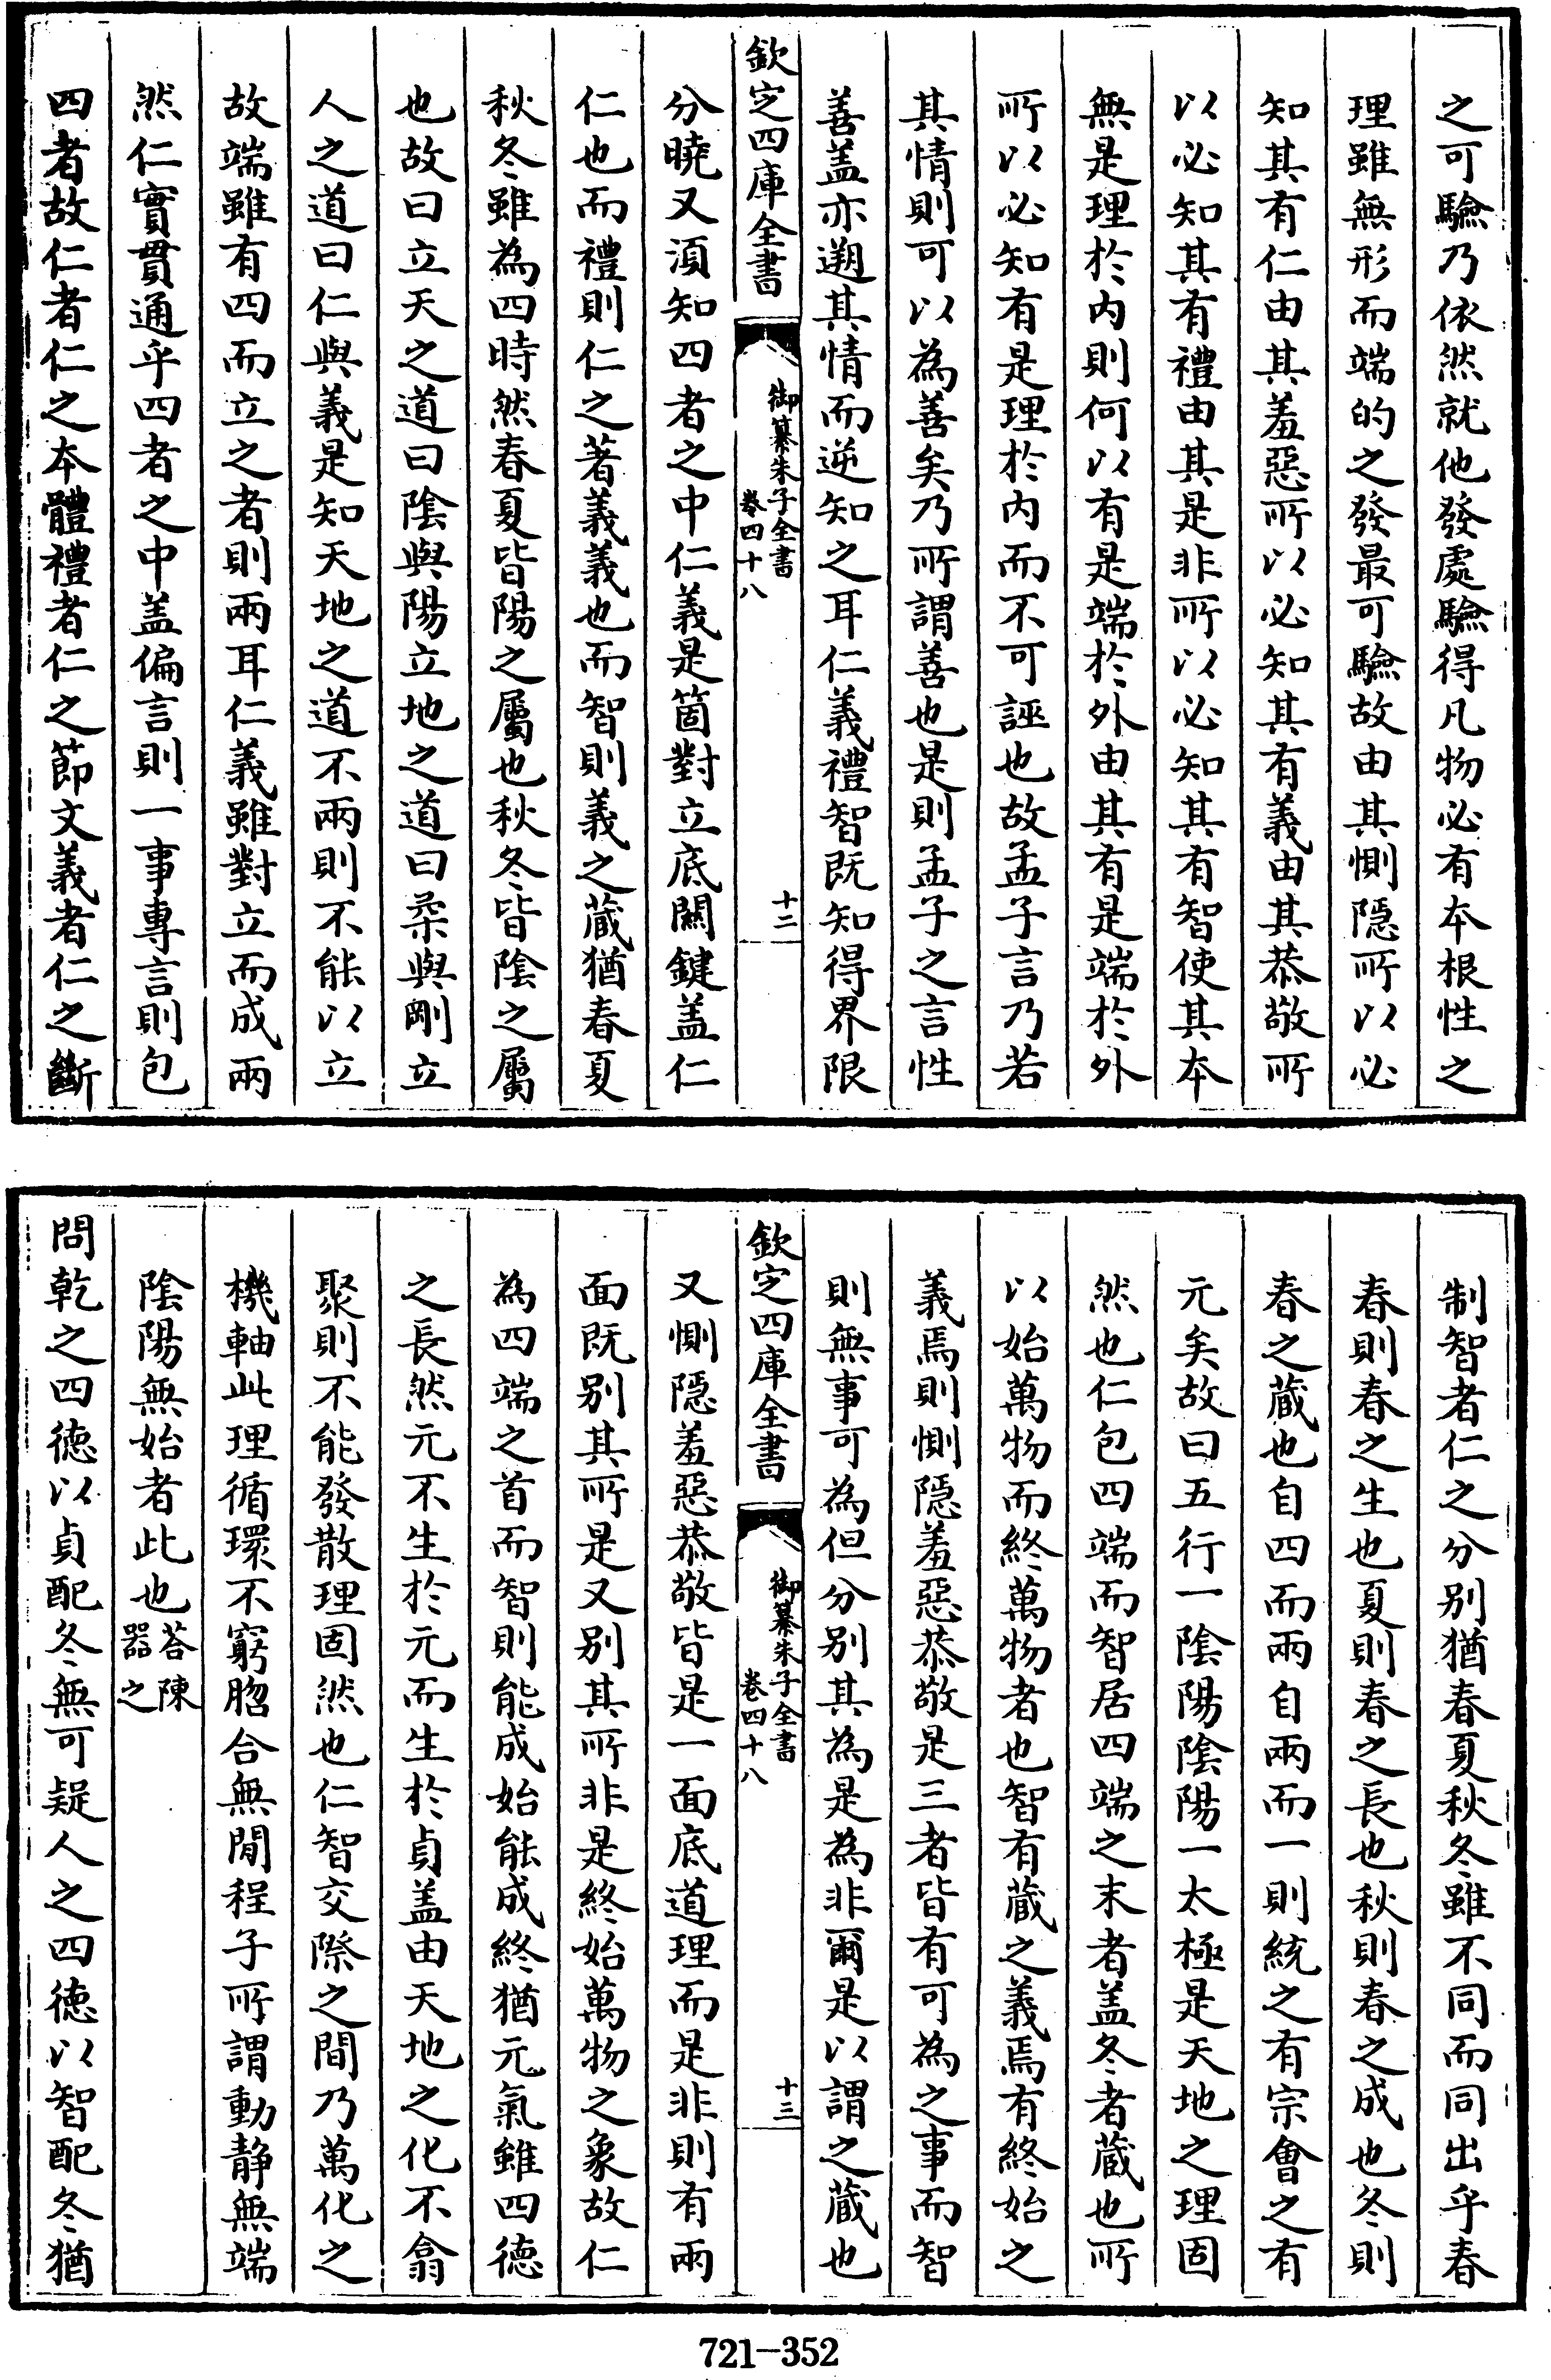 之可驗乃依然就他發處驗得凡物必有本根性之
理雖無形而端的之發最可驗故由其惻隱所以必
知其有仁由其羞惡所以必知其有義由其恭敬所
以必知其有禮由其是非所以必知其有智使其本
無是理於内則何以有是端於外由其有是端於外
所以必知有是理於内而不可誣也故孟子言乃若
其情則可以為善矣乃所謂善也是則孟子之言性
善盖亦遡其情而逆知之耳仁義禮智既知得界限
欽定四庫全書
御纂朱子全書
卷四十八
十二
分曉又須知四者之中仁義是箇對立底關鍵盖仁
仁也而禮則仁之著義義也而智則義之蔵猶春夏
秋冬雖為四時然春夏皆陽之屬也秋冬皆陰之屬
也故曰立天之道曰陰與陽立地之道曰柔與剛立
人之道曰仁與義是知天地之道不兩則不能以立
故端雖有四而立之者則兩耳仁義雖對立而成兩
然仁實貫通乎四者之中盖偏言則一事專言則包
四者故仁者仁之本體禮者仁之節文義者仁之斷
制智者仁之分别猶春夏秋冬雖不同而同出乎春
春則春之生也夏則春之長也秋則春之成也冬則
春之蔵也自四而兩自兩而一則統之有宗會之有
元矣故曰五行一陰陽陰陽一太極是天地之理固
然也仁包四端而智居四端之末者盖冬者蔵也所
以始萬物而終萬物者也智有蔵之義焉有終始之
義焉則惻隱羞惡恭敬是三者皆有可為之事而智
則無事可為但分别其為是為非爾是以謂之蔵也
欽定四庫全書
御纂朱子全書
卷四十八
十三
又惻隱羞惡恭敬皆是一面底道理而是非則有兩
面既别其所是又别其所非是終始萬物之象故仁
為四端之首而智則能成始能成終猶元氣雖四德
之長然元不生於元而生於貞盖由天地之化不翕
聚則不能發散理固然也仁智交際之間乃萬化之
機軸此理循環不窮脗合無間程子所謂動静無端
陰陽無始者此也答陳
器之
問乾之四德以貞配冬無可疑人之四德以智配冬猶
721-352